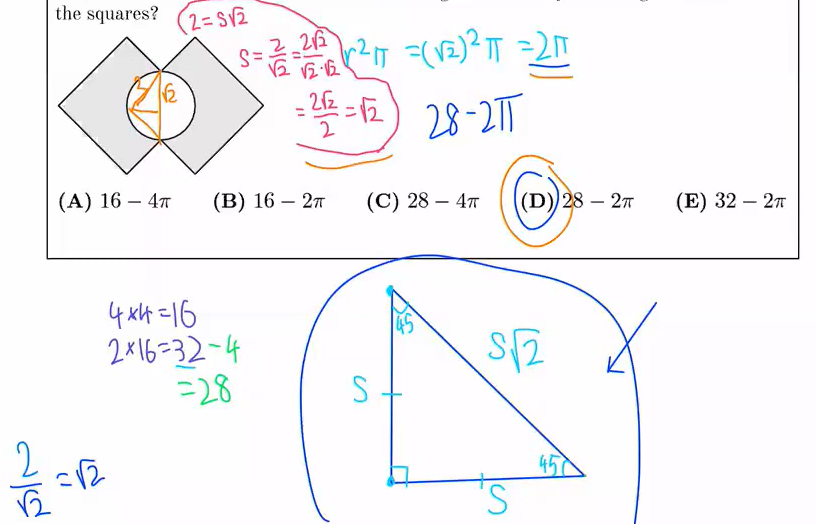 the squares?
2 = S√2
S = 2/√2 = 2√2/√2·√2
= 2√2/2 = √2
r²π = (√2)²π = 2π
2
√2
28 - 2π
(A) 16 − 4π (B) 16 − 2π (C) 28 − 4π (D) 28 − 2π (E) 32 − 2π
4×4=16
2×16=32-4
=28
45
S√2
S
45
S
2/√2 = √2